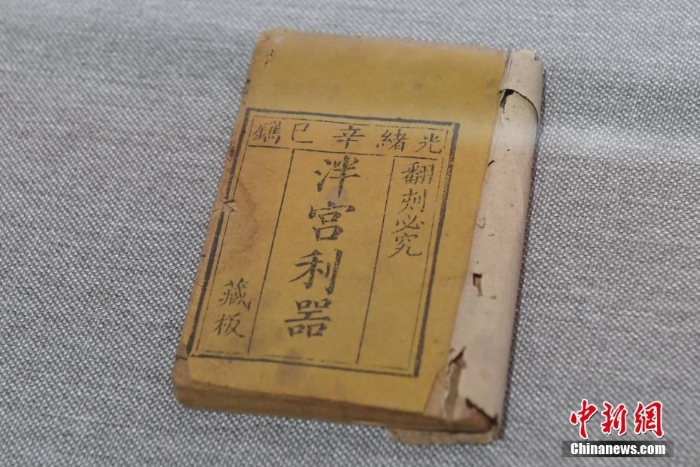 光緒辛巳鐫
翻刻必究
泮宮利器
藏板
中新网
Chinanews.com